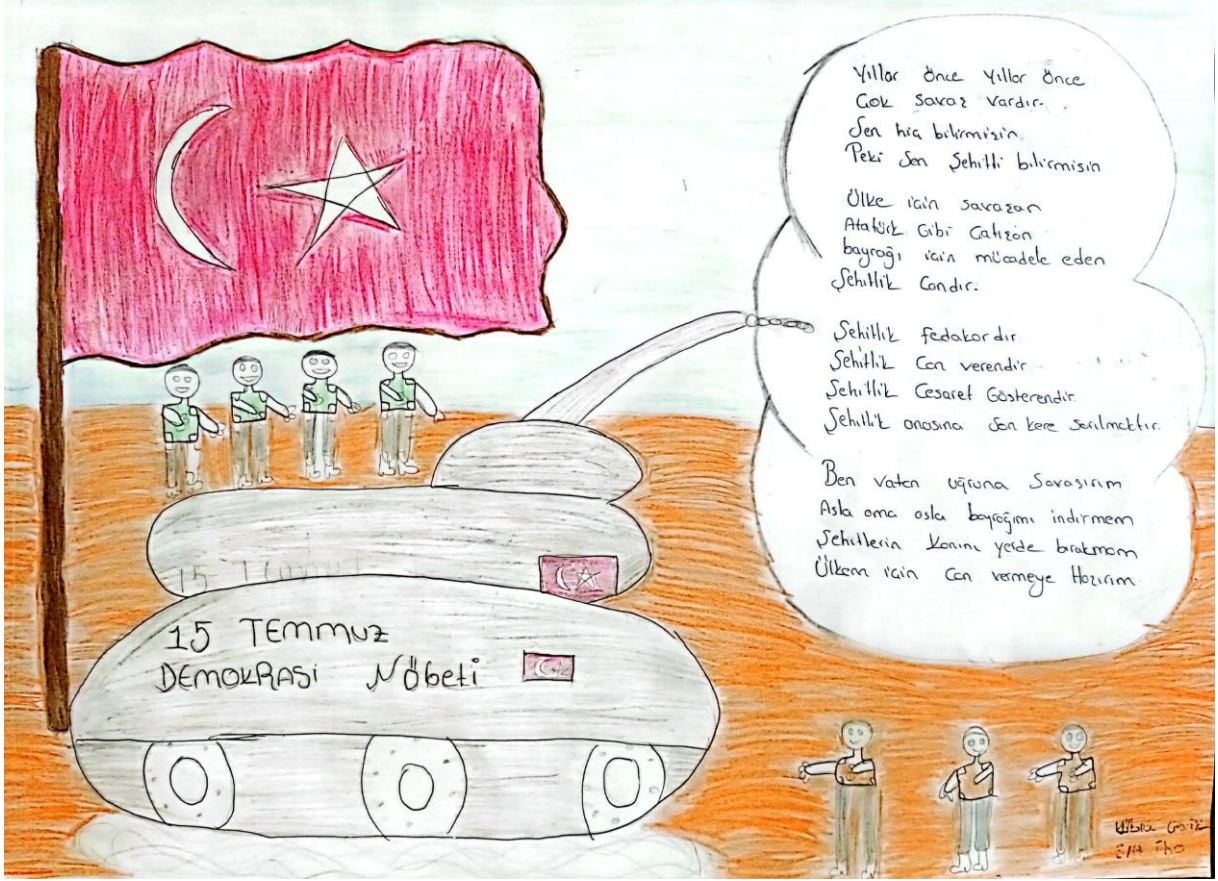 Yıllar Önce Yıllar Önce
Çok Savaş Vardır.
Sen hiç bilirmisin
Peki Sen Şehitli bilirmisin
Ülke için savaşan
Atatürk Gibi Çalışan
bayrağı için mücadele eden
Şehitlik Candır.
Şehitlik fedakardır
Şehitlik Can verendir
Şehitlik Cesaret Gösterendir
Şehitlik anasına Son kere sarılmaktır.
Ben vatan uğruna Savaşırım
Asla ama asla bayrağımı indirmem
Şehitlerin Kanını yerde bırakmam
Ülkem için Can vermeye Hazırım
15 TEMMUZ
15 TEMMUZ
DEMOKRASİ Nöbeti
Kübra